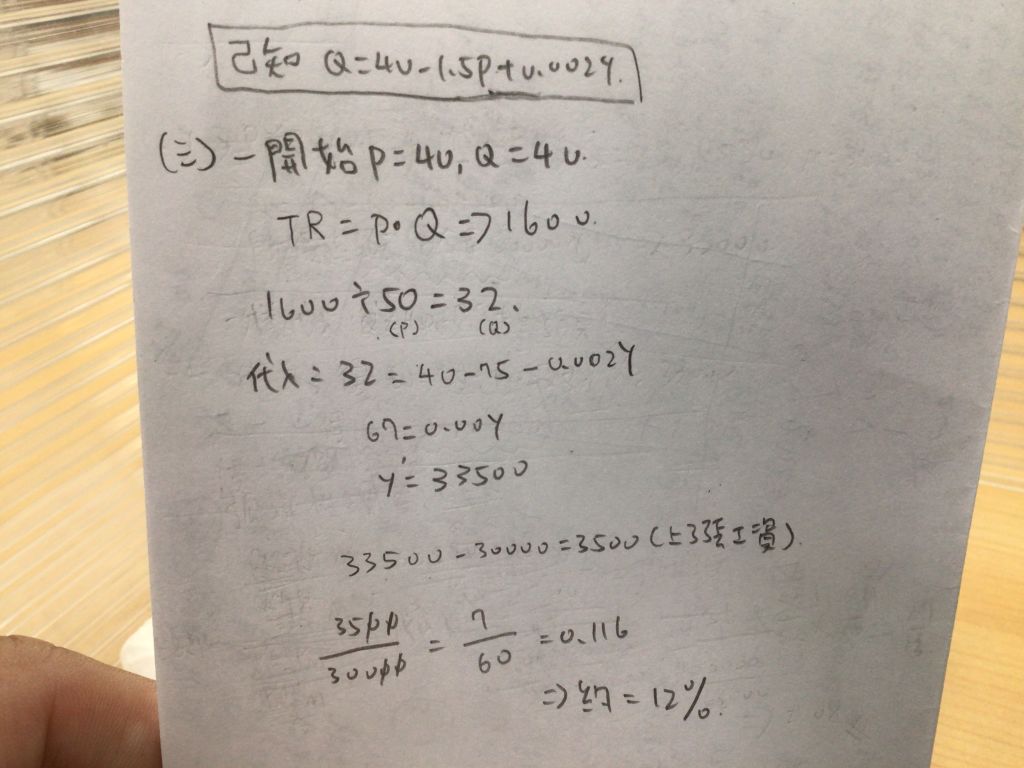 己知 Q=40-1.5P+0.002Y.
(三)一開始 P=40, Q=40.
TR=P·Q⇒1600.
1600÷50=32.
(P) (Q)
代入=32=40-75-0.002Y
67=0.00Y
Y'=33500
33500-30000=3500(上漲工資).
3500/30000 = 7/60 =0.116
⇒約=12%.